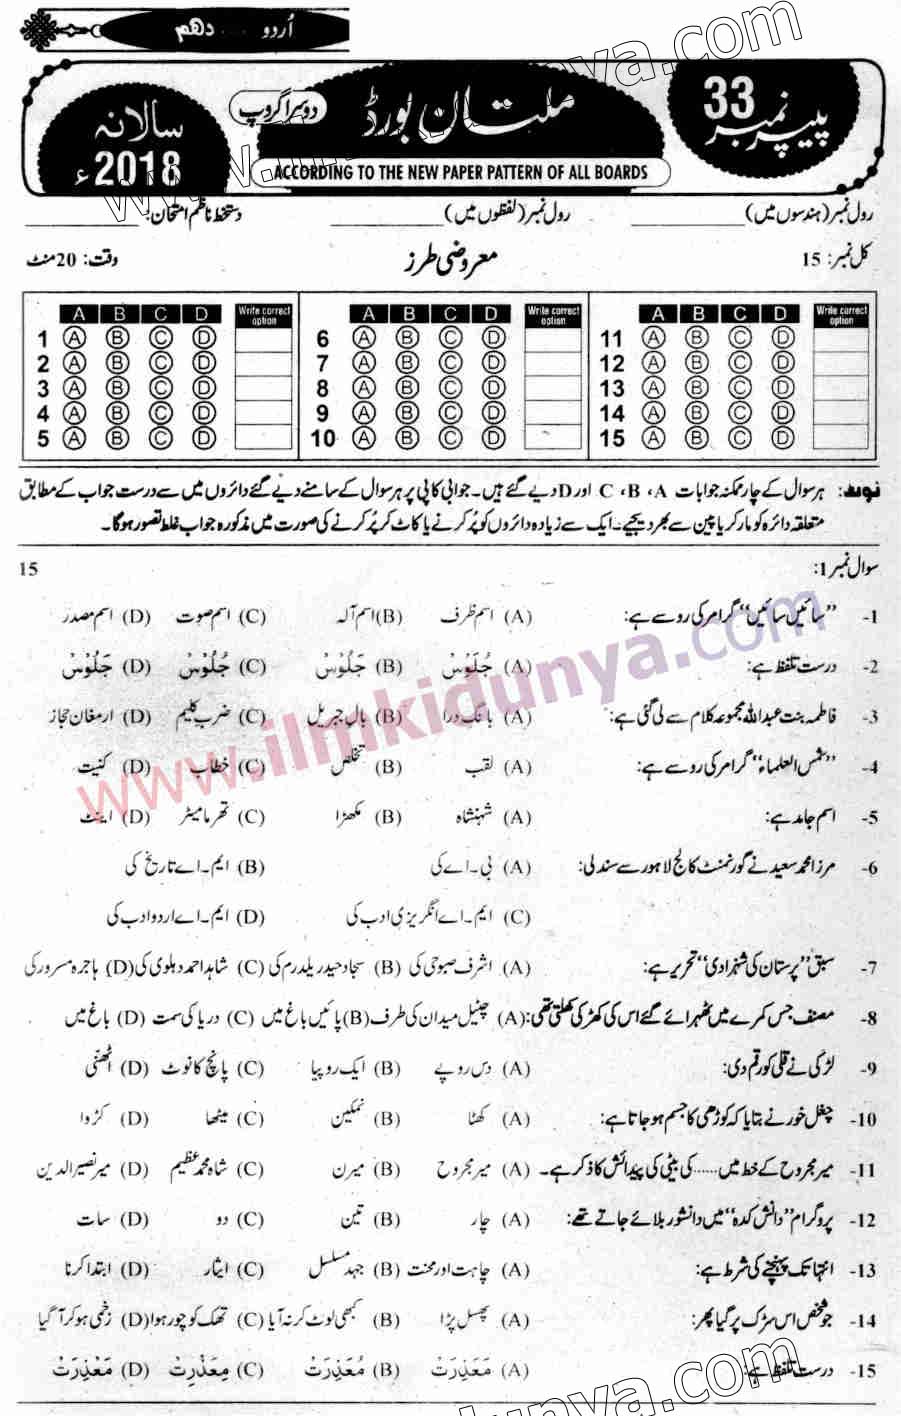 اُردو .... دھم
پیپر نمبر 33
ملتان بورڈ
دوسرا گروپ
سالانہ 2018ء
ACCORDING TO THE NEW PAPER PATTERN OF ALL BOARDS
رول نمبر (ہندسوں میں) ________ رول نمبر (لفظوں میں) ________ دستخط ناظم امتحان: ________
کل نمبر: 15 معروضی طرز وقت: 20 منٹ
A B C D Write correct option A B C D Write correct option A B C D Write correct option
1 A B C D 6 A B C D 11 A B C D
2 A B C D 7 A B C D 12 A B C D
3 A B C D 8 A B C D 13 A B C D
4 A B C D 9 A B C D 14 A B C D
5 A B C D 10 A B C D 15 A B C D
نوٹ: ہر سوال کے چار ممکنہ جوابات C ،B ،A اور D دیے گئے ہیں۔ جوابی کاپی پر ہر سوال کے سامنے دیے گئے دائروں میں سے درست جواب کے مطابق
متعلقہ دائرہ کو مارکر یا پین سے بھر دیجیے۔ ایک سے زیادہ دائروں کو پُر کرنے یا کاٹ کر پُر کرنے کی صورت میں مذکورہ جواب غلط تصور ہو گا۔
سوال نمبر 1: 15
1- ’’سائیں سائیں‘‘ گرامر کی رو سے ہے: (A) اسم ظرف (B) اسم آلہ (C) اسم صوت (D) اسم مصدر
2- درست تلفظ ہے: (A) جُلَوْسْ (B) جَلُوْسْ (C) جُلُوْسْ (D) جَلُوْسْ
3- فاطمہ بنت عبداللہ مجموعہ کلام سے لی گئی ہے: (A) بانگ درا (B) بال جبریل (C) ضرب کلیم (D) ارمغان حجاز
4- ’’شمس العلماء‘‘ گرامر کی رو سے ہے: (A) لقب (B) تخلص (C) خطاب (D) کنیت
5- اسم جامد ہے: (A) شہنشاہ (B) مکھڑا (C) تھرمامیٹر (D) اینٹ
6- مرزا محمد سعید نے گورنمنٹ کالج لاہور سے سند لی: (A) بی۔اے کی (B) ایم۔اے تاریخ کی
(C) ایم۔اے انگریزی ادب کی (D) ایم۔اے اردو ادب کی
7- سبق ’’پرستان کی شہزادی‘‘ تحریر ہے: (A) اشرف صبوحی کی (B) سجاد حیدر یلدرم کی (C) شاہد احمد دہلوی کی (D) ہاجرہ مسرور کی
8- مصنف جس کمرے میں ٹھہرائے گئے اس کی کھڑکی کھلتی تھی: (A) چٹیل میدان کی طرف (B) پائیں باغ میں (C) دریا کی سمت (D) باغ میں
9- لڑکی نے قلی کو رقم دی: (A) دس روپے (B) ایک روپیا (C) پانچ کا نوٹ (D) اٹھنی
10- چغل خور نے بتایا کہ کوڑھی کا جسم ہو جاتا ہے: (A) کھٹا (B) نمکین (C) میٹھا (D) کڑوا
11- میر مجروح کے خط میں ...... کی بیٹی کی پیدائش کا ذکر ہے۔ (A) میر مجروح (B) میرن (C) شاہ محمد عظیم (D) میر نصیر الدین
12- پروگرام ’’دانش کدہ‘‘ میں دانشور بلائے جاتے تھے: (A) چار (B) تین (C) دو (D) سات
13- انتہا تک پہنچنے کی شرط ہے: (A) چاہت اور محنت (B) جہد مسلسل (C) ایثار (D) ابتدا کرنا
14- جو شخص اس سڑک پر گیا پھر: (A) پھسل پڑا (B) کبھی لوٹ کر نہ آیا (C) تھک کو چور ہوا (D) زخمی ہو کر آ گیا
15- درست تلفظ ہے: (A) مَعَذِرَتْ (B) مُعَذِرَتْ (C) مِعَذْرِتْ (D) مَعْذِرَتْ
www.ilmkidunya.com